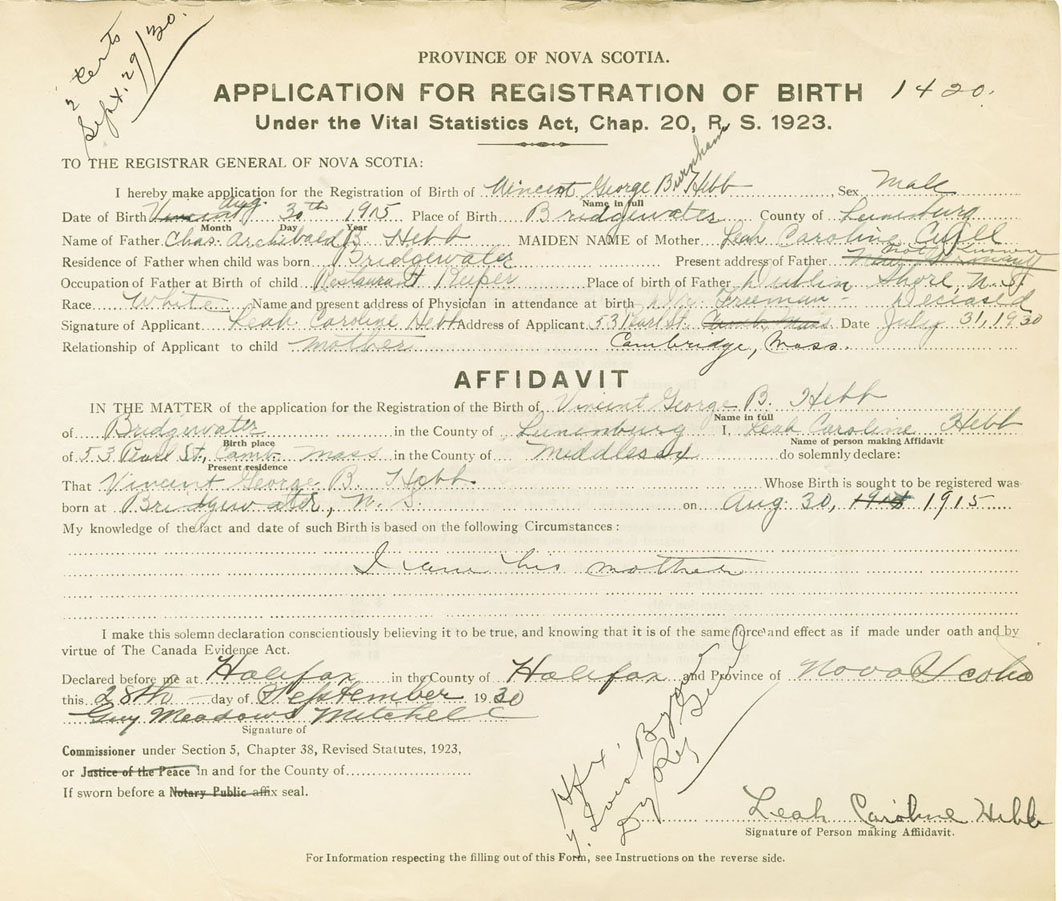 2 Certs
Sept. 29/30.
PROVINCE OF NOVA SCOTIA.
APPLICATION FOR REGISTRATION OF BIRTH 1420.
Under the Vital Statistics Act, Chap. 20, R. S. 1923.
TO THE REGISTRAR GENERAL OF NOVA SCOTIA:
Burnham
I hereby make application for the Registration of Birth of Vincent George B. Hebb Sex Male
Name in full
Date of Birth Aug. 30th 1915 Place of Birth Bridgewater County of Lunenburg
Month Day Year
Name of Father Chas. Archibald B. Hebb MAIDEN NAME of Mother Leah Caroline
Residence of Father when child was born Bridgewater Present address of Father
Occupation of Father at Birth of child Restaurant Keeper Place of birth of Father Dublin Shore, N.S.
Race White Name and present address of Physician in attendance at birth Dr. Freeman - Deceased
Signature of Applicant Leah Caroline Hebb Address of Applicant 53 Pearl St. Camb. Mass Date July 31, 1930
Relationship of Applicant to child mother Cambridge, Mass.
AFFIDAVIT
IN THE MATTER of the application for the Registration of the Birth of Vincent George B. Hebb
Name in full
of Bridgewater in the County of Lunenburg I, Leah Caroline Hebb
Birth place Name of person making Affidavit
of 53 Pearl St., Camb. Mass in the County of Middlesex do solemnly declare:
Present residence
That Vincent George B. Hebb Whose Birth is sought to be registered was
born at Bridgewater, N. S. on Aug. 30, 1914 1915
My knowledge of the fact and date of such Birth is based on the following Circumstances:
I am his mother
I make this solemn declaration conscientiously believing it to be true, and knowing that it is of the same force and effect as if made under oath and by
virtue of The Canada Evidence Act.
Declared before me at Halifax in the County of Halifax and Province of Nova Scotia
this 28th day of September 1930
Guy Meadows Mitchell
Signature of
Commissioner under Section 5, Chapter 38, Revised Statutes, 1923,
or Justice of the Peace in and for the County of
If sworn before a Notary Public affix seal.
Hfx
Dy Reg
Leah Caroline Hebb
Signature of Person making Affidavit.
For Information respecting the filling out of this Form, see Instructions on the reverse side.